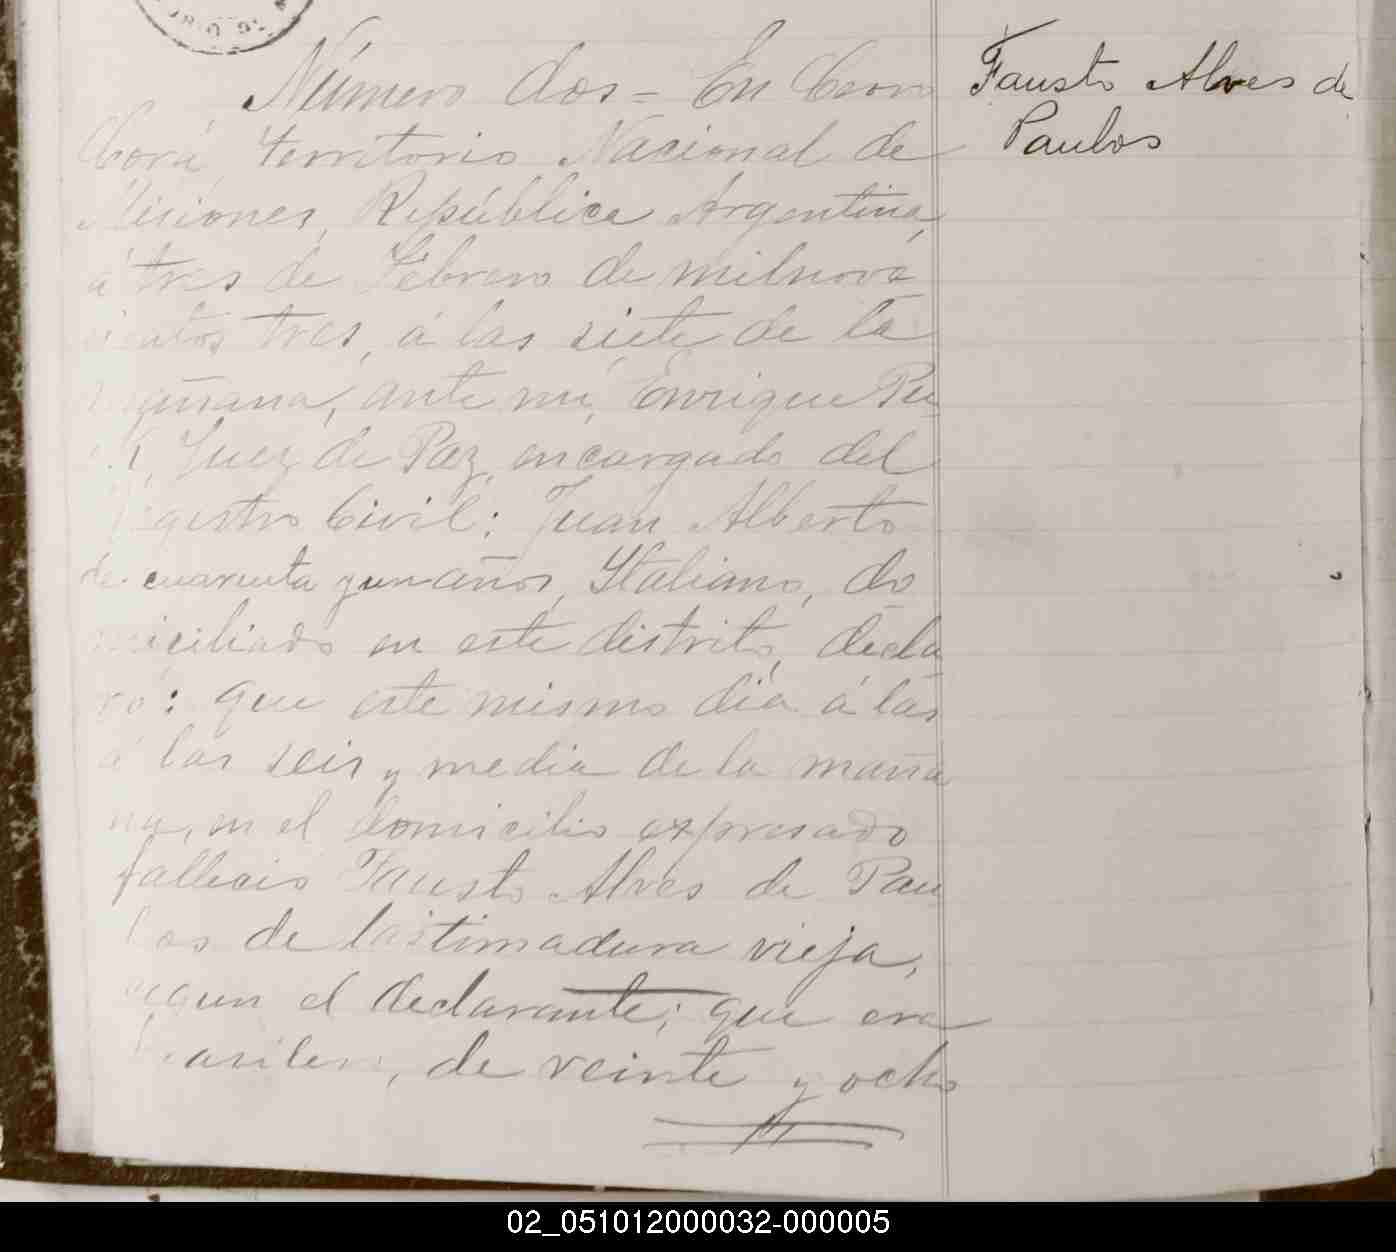 Número dos = En Cerro
Corá, territorio Nacional de
Misiones, República Argentina,
a tres de Febrero de milnove
cientos tres, á las siete de la
mañana, ante mi, Enrique
Juez de Paz, encargado del
Registro Civil: Juan Alberto
de cuarenta y un años, Italiano, do
miciliado en este distrito, decla
ró: que este mismo dia á las
á las seis y media de la maña
na, en el domicilio expresado
fallecio Fausto Alves de Pau
los de lastimadura vieja,
segun el declarante; que era
brasilero, de veinte y ocho
Fausto Alves de
Paulos
02_051012000032-000005